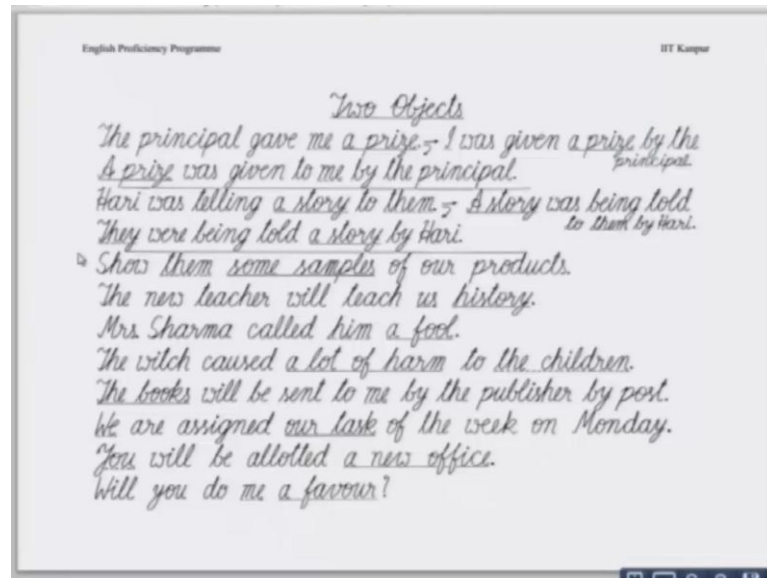 English Proficiency Programme
IIT Kanpur
Two Objects
The principal gave me a prize. - I was given a prize by the
principal
A prize was given to me by the principal.
Hari was telling a story to them. - A story was being told
to them by Hari.
They were being told a story by Hari.
Show them some samples of our products.
The new teacher will teach us history.
Mrs. Sharma called him a fool.
The witch caused a lot of harm to the children.
The books will be sent to me by the publisher by post.
We are assigned our task of the week on Monday.
You will be allotted a new office.
Will you do me a favour?